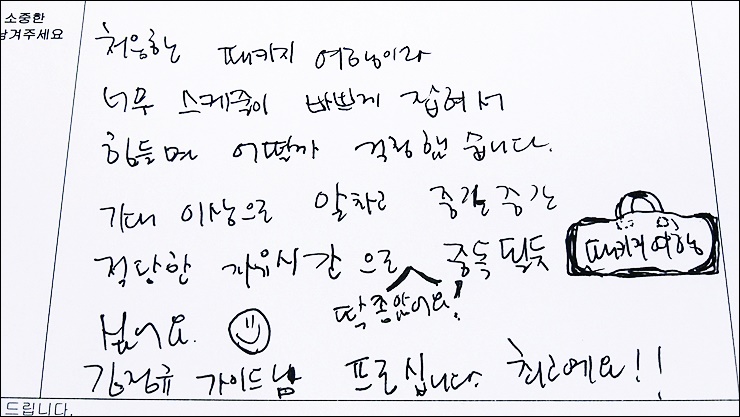 소중한
남겨주세요
처음하는 패키지 여행이라
너무 스케쥴이 바쁘게 잡혀서
힘들면 어떨까 걱정했습니다.
기대 이상으로 알차고 중간중간
적당한 자유시간으로 중독될듯
딱 좋았어요!
패키지 여행
싶어요.
김정규 가이드님 프로십니다. 최고예요!!
드립니다.